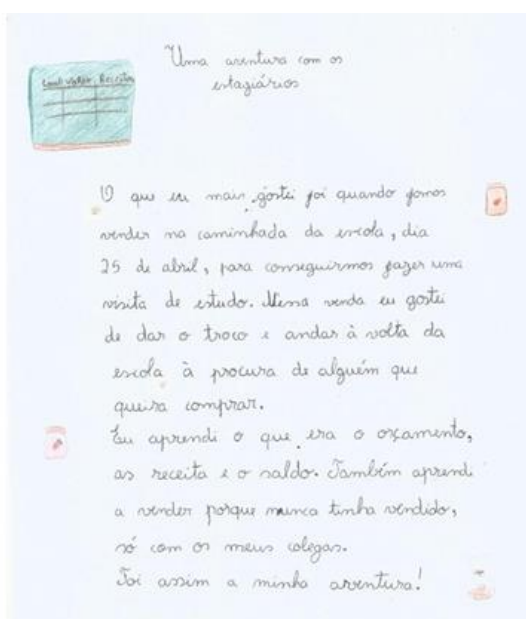 Uma aventura com os
estagiários
Receitas
O que eu mais gostei foi quando fomos
vender na caminhada da escola, dia
25 de abril, para conseguirmos fazer uma
visita de estudo. Nessa venda eu gostei
de dar o troco e andar à volta da
escola à procura de alguém que
queira comprar.
Eu aprendi o que era o orçamento,
as receita e o saldo. Também aprendi
a vender porque nunca tinha vendido,
só com os meus colegas.
Foi assim a minha aventura!